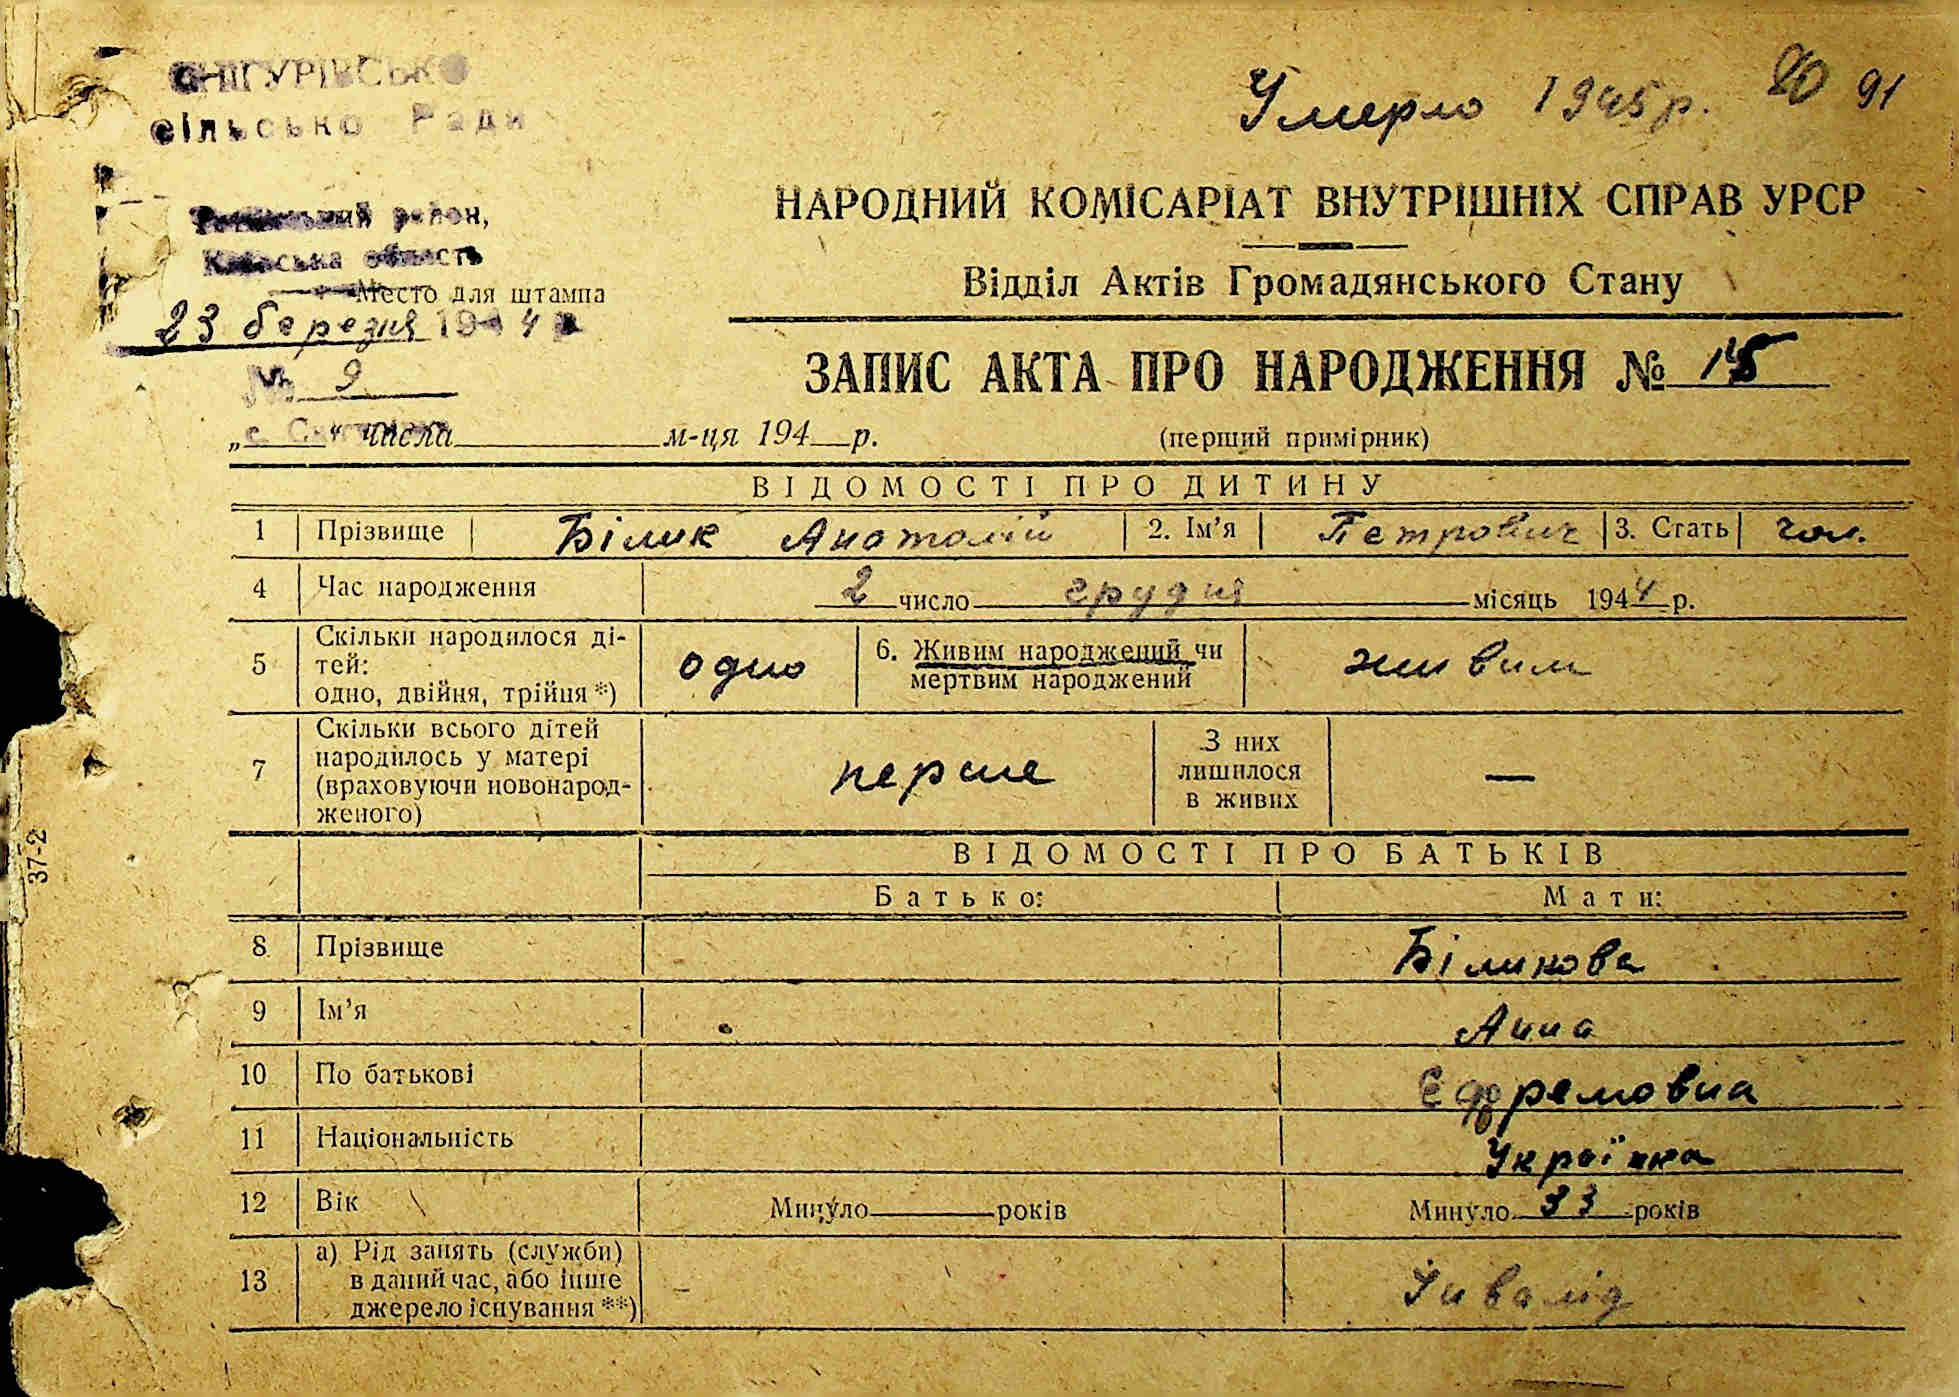 СНІГУРІВСЬКО
сільсько Ради
Умерло 1945 р. 91
район,
Київська область
НАРОДНИЙ КОМІСАРІАТ ВНУТРІШНІХ СПРАВ УРСР
Відділ Актів Громадянського Стану
Место для штампа
23 березня 1944
№ 9
ЗАПИС АКТА ПРО НАРОДЖЕННЯ № 15
„ “ числа м-ця 194 р.
(перший примірник)
ВІДОМОСТІ ПРО ДИТИНУ
1 Прізвище Білик Анатолій 2. Ім’я Петрович 3. Стать чол.
4 Час народження 2 число грудня місяць 1944 р.
5 Скільки народилося ді-
тей:
одно, двійня, трійня *)
одно
6. Живим народжений чи
мертвим народжений
живим
7 Скільки всього дітей
народилось у матері
(враховуючи новонарод-
женого)
перше
З них
лишилося
в живих
—
ВІДОМОСТІ ПРО БАТЬКІВ
Батько: Мати:
8 Прізвище Біликова
9 Ім’я Анна
10 По батькові Єфремовна
11 Національність Українка
12 Вік Минуло років Минуло 33 років
13 а) Рід занять (служби)
в даний час, або інше
джерело існування **)
Інвалід
37-2